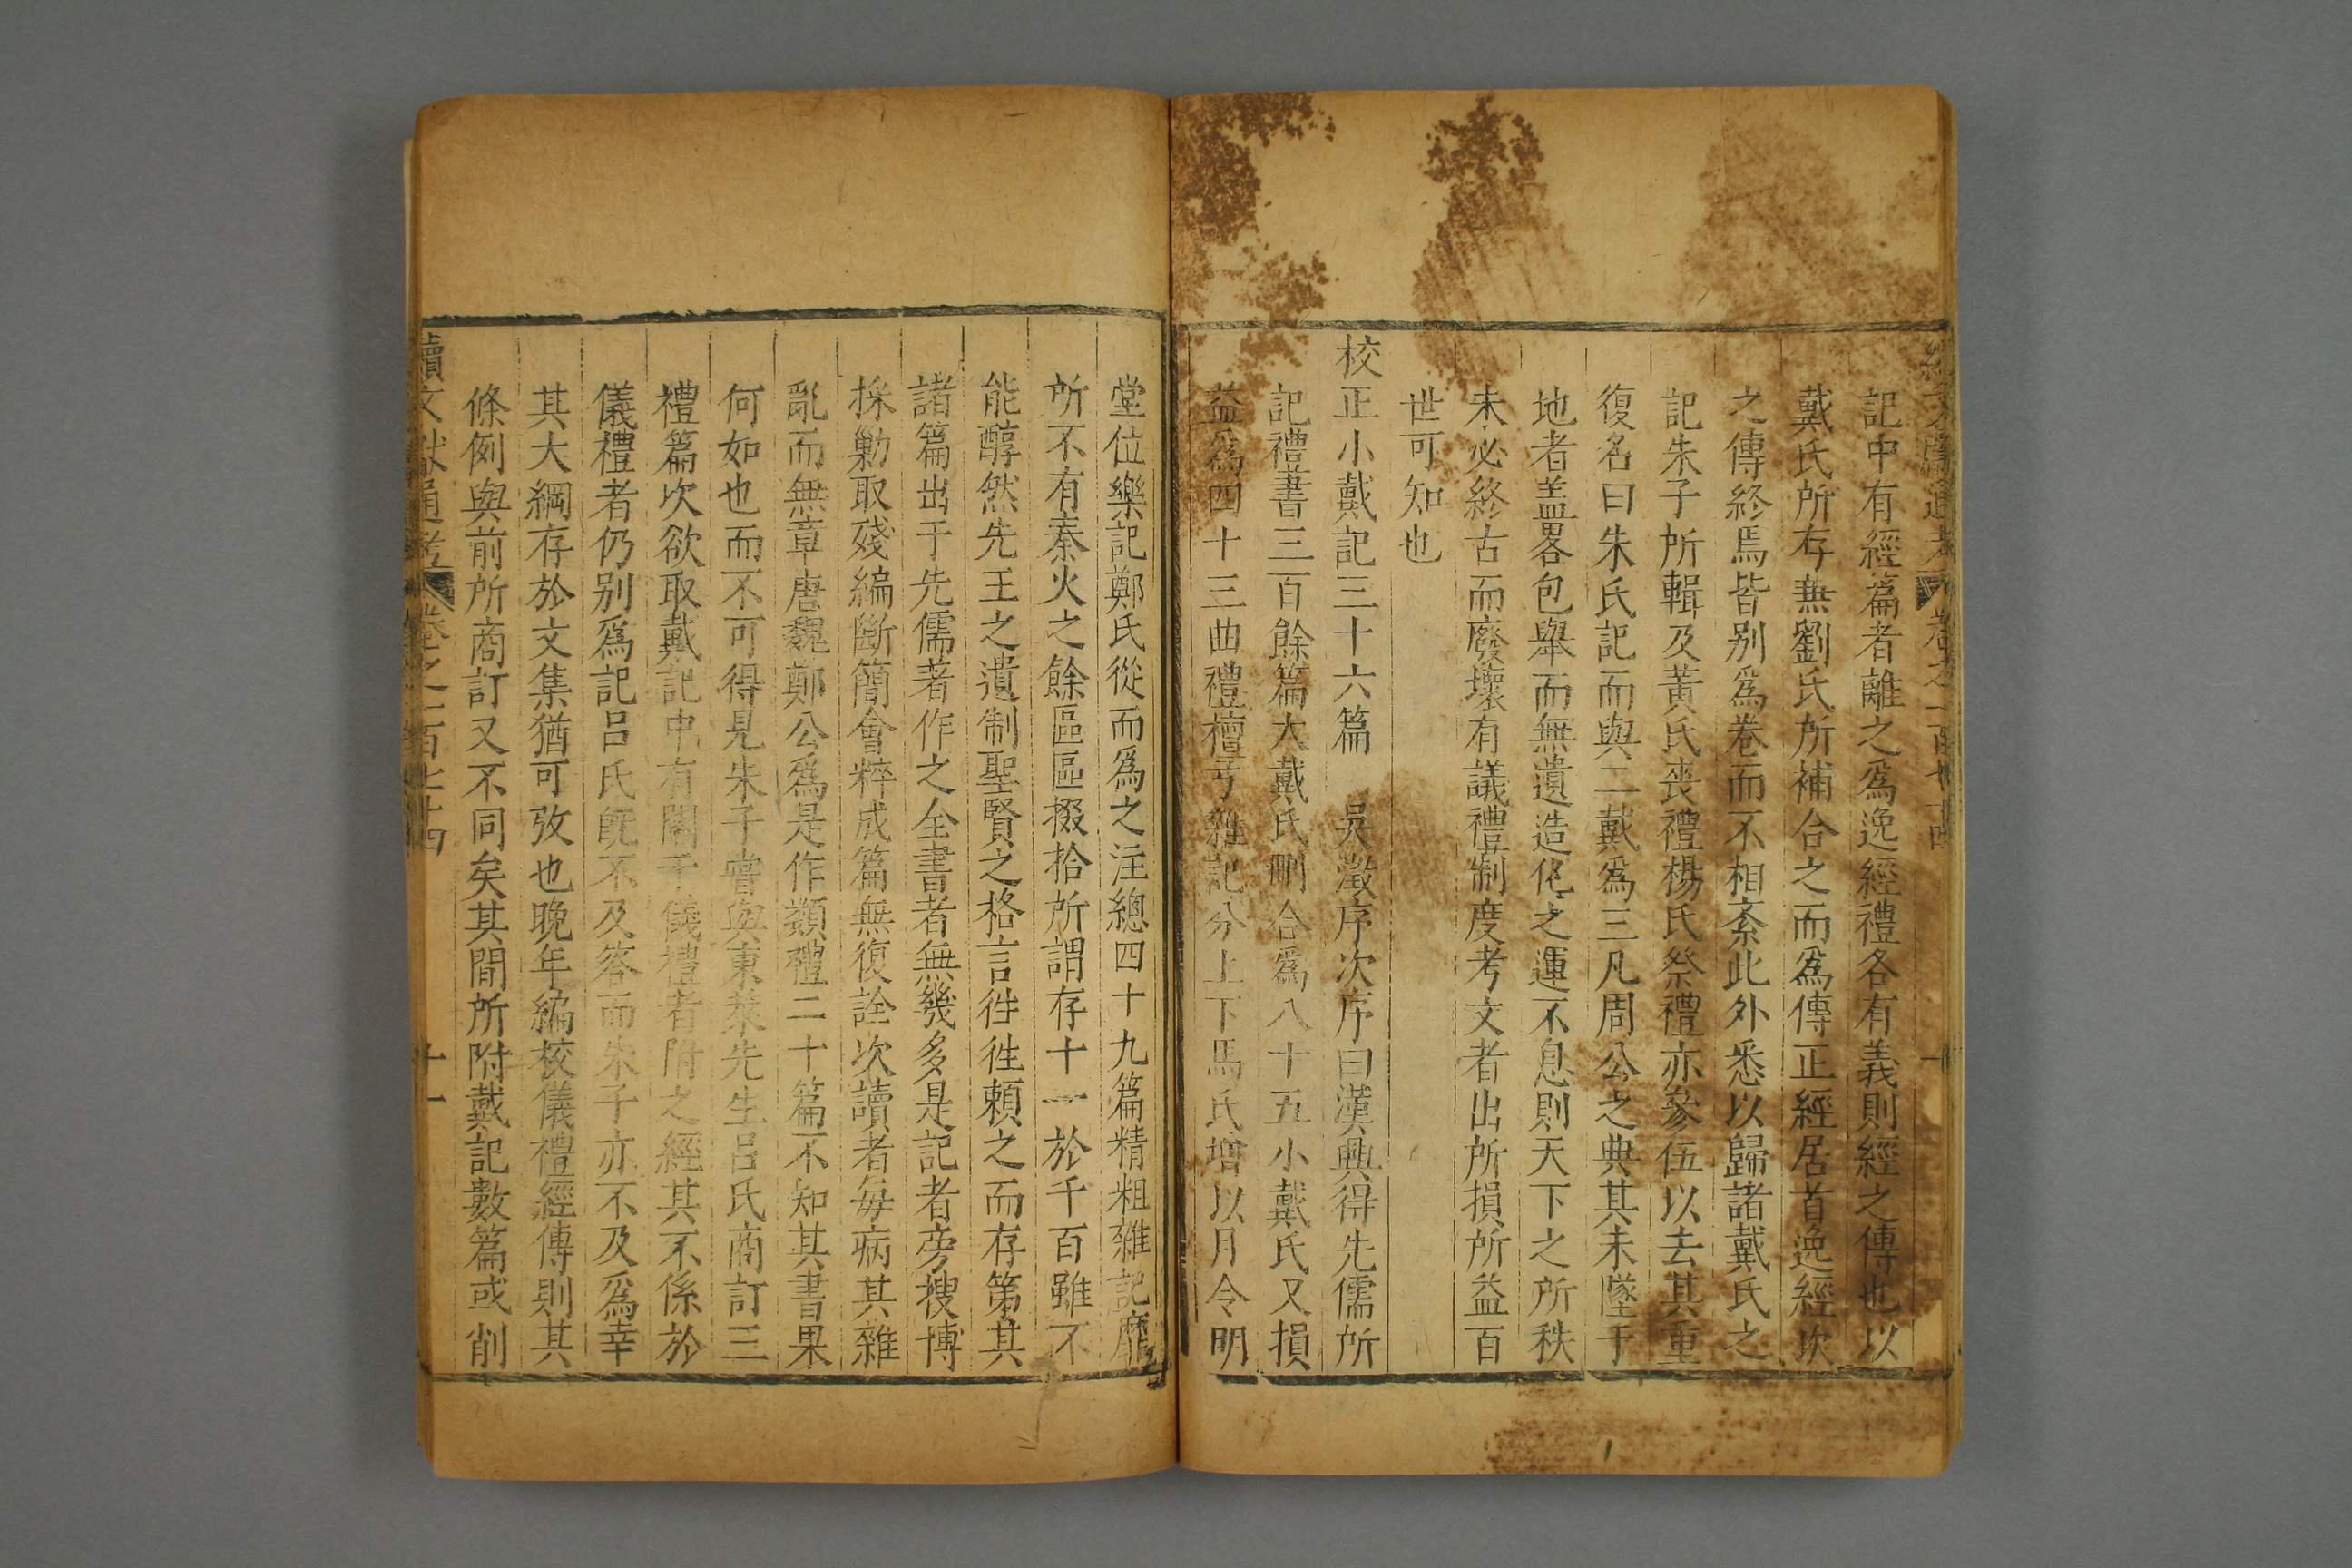 記中有經篇者離之爲逸經禮各有義則經之傳也以
戴氏所存無劉氏所補合之而爲傳正經居首逸經次
之傳終焉皆别爲卷而不相紊此外悉以歸諸戴氏之
記朱子所輯及黃氏喪禮楊氏祭禮亦參伍以去其重
復名曰朱氏記而與二戴爲三凡周公之典其未墜于
地者盖畧包舉而無遺造化之運不息則天下之所秩
未必終古而廢壞有議禮制度考文者出所損所益百
世可知也
校正小戴記三十六篇 吳澂序次序曰漢興得先儒所
記禮書三百餘篇大戴氏刪合爲八十五小戴氏又損
益爲四十三曲禮檀弓雜記分上下馬氏增以月令明
堂位樂記鄭氏從而爲之注總四十九篇精粗雜記靡
所不有秦火之餘區區掇拾所謂存十一於千百雖不
能醇然先王之遺制聖賢之格言徃徃賴之而存第其
諸篇出于先儒著作之全書者無幾多是記者旁搜博
採勦取殘編斷簡會稡成篇無復詮次讀者每病其雜
亂而無章唐魏鄭公爲是作類禮二十篇不知其書果
何如也而不可得見朱子嘗與東萊先生呂氏商訂三
禮篇次欲取戴記中有關于儀禮者附之經其不係於
儀禮者仍别爲記呂氏旣不及答而朱子亦不及爲幸
其大綱存於文集猶可攷也晚年編校儀禮經傳則其
條例與前所商訂又不同矣其間所附戴記數篇或削
續文獻通考 卷之一百七十四 十一